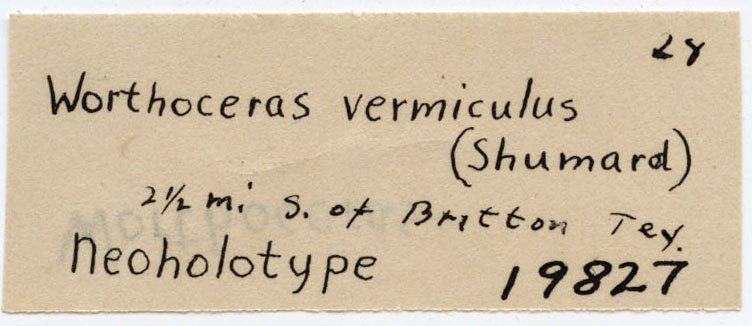 28
Worthoceras vermiculus
(Shumard)
2½ mi S. of Britton Tex.
Neoholotype
19827